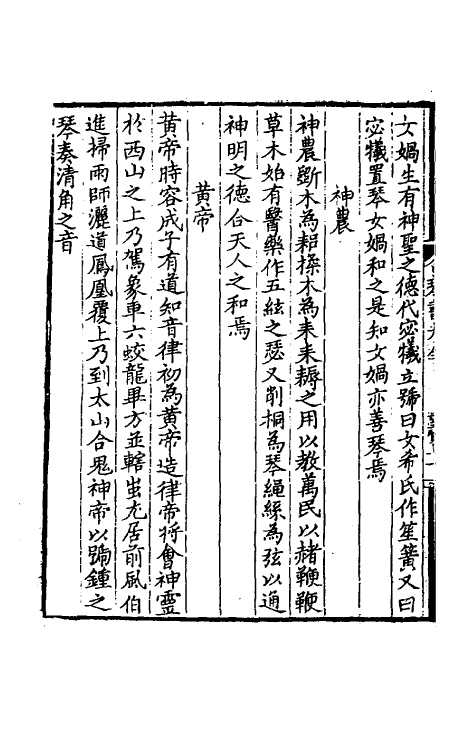 女媧生有神聖之德代宓犧立號曰女希氏作笙簧又曰
宓犧置琴女媧和之是知女媧亦善琴焉
神農
神農斲木為耜揉木為耒耒耨之用以教萬民以赭鞭鞭
草木始有醫藥作五絃之瑟又削桐為琴繩絲為弦以通
神明之德合天人之和焉
黃帝
黃帝時容成子有道知音律初為黃帝造律帝將會神靈
於西山之上乃駕象車六蛟龍畢方並轄蚩尤居前風伯
進掃雨師灑道鳳凰覆上乃到太山合鬼神帝以號鍾之
琴奏清角之音